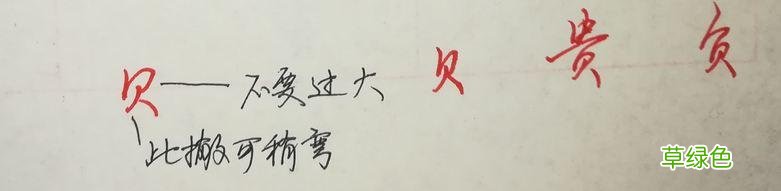 贝——不要过大 贝 貴 负
此撇可稍弯
草绿色